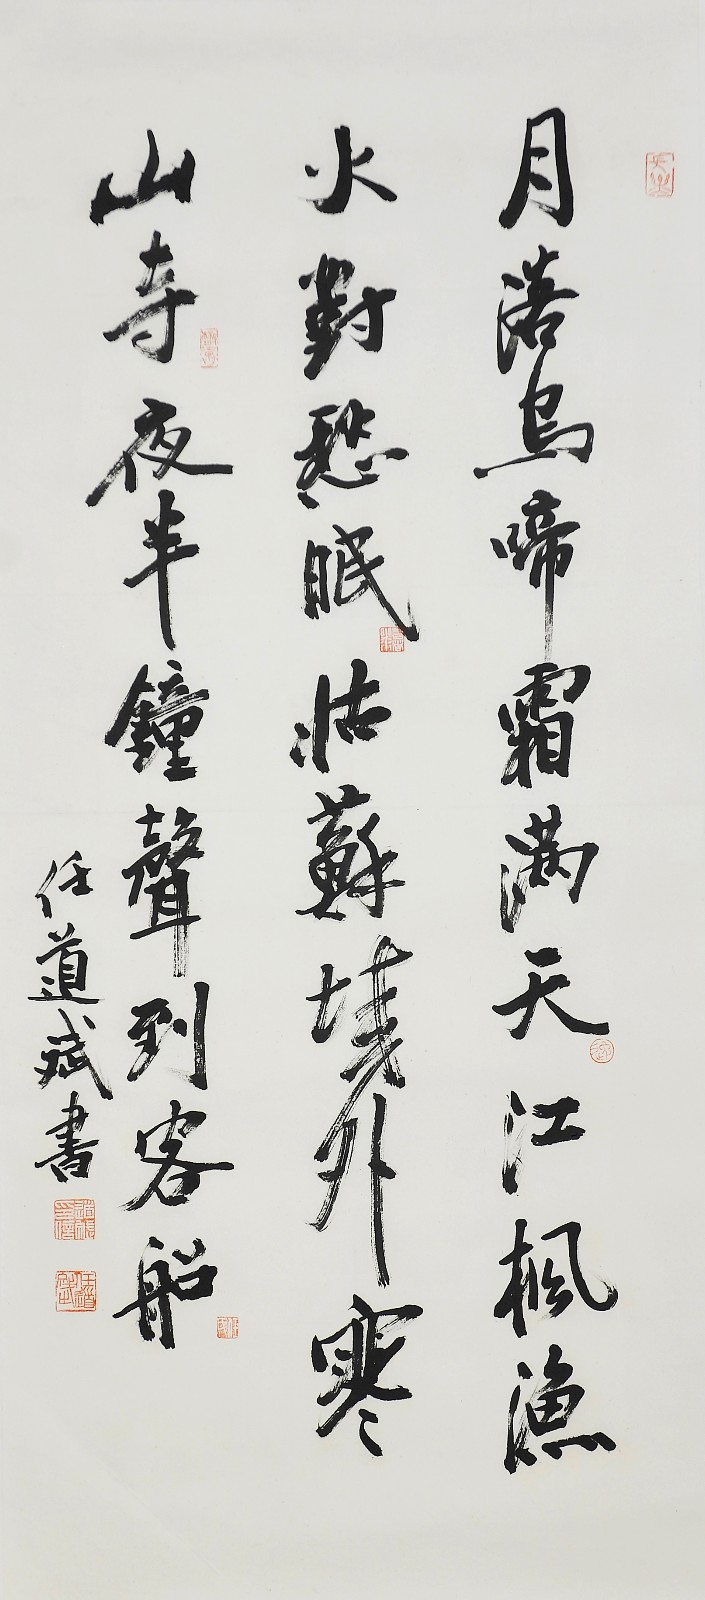 月落烏啼霜滿天江楓漁
火對愁眠姑蘇城外寒
山寺夜半鐘聲到客船
任道斌書